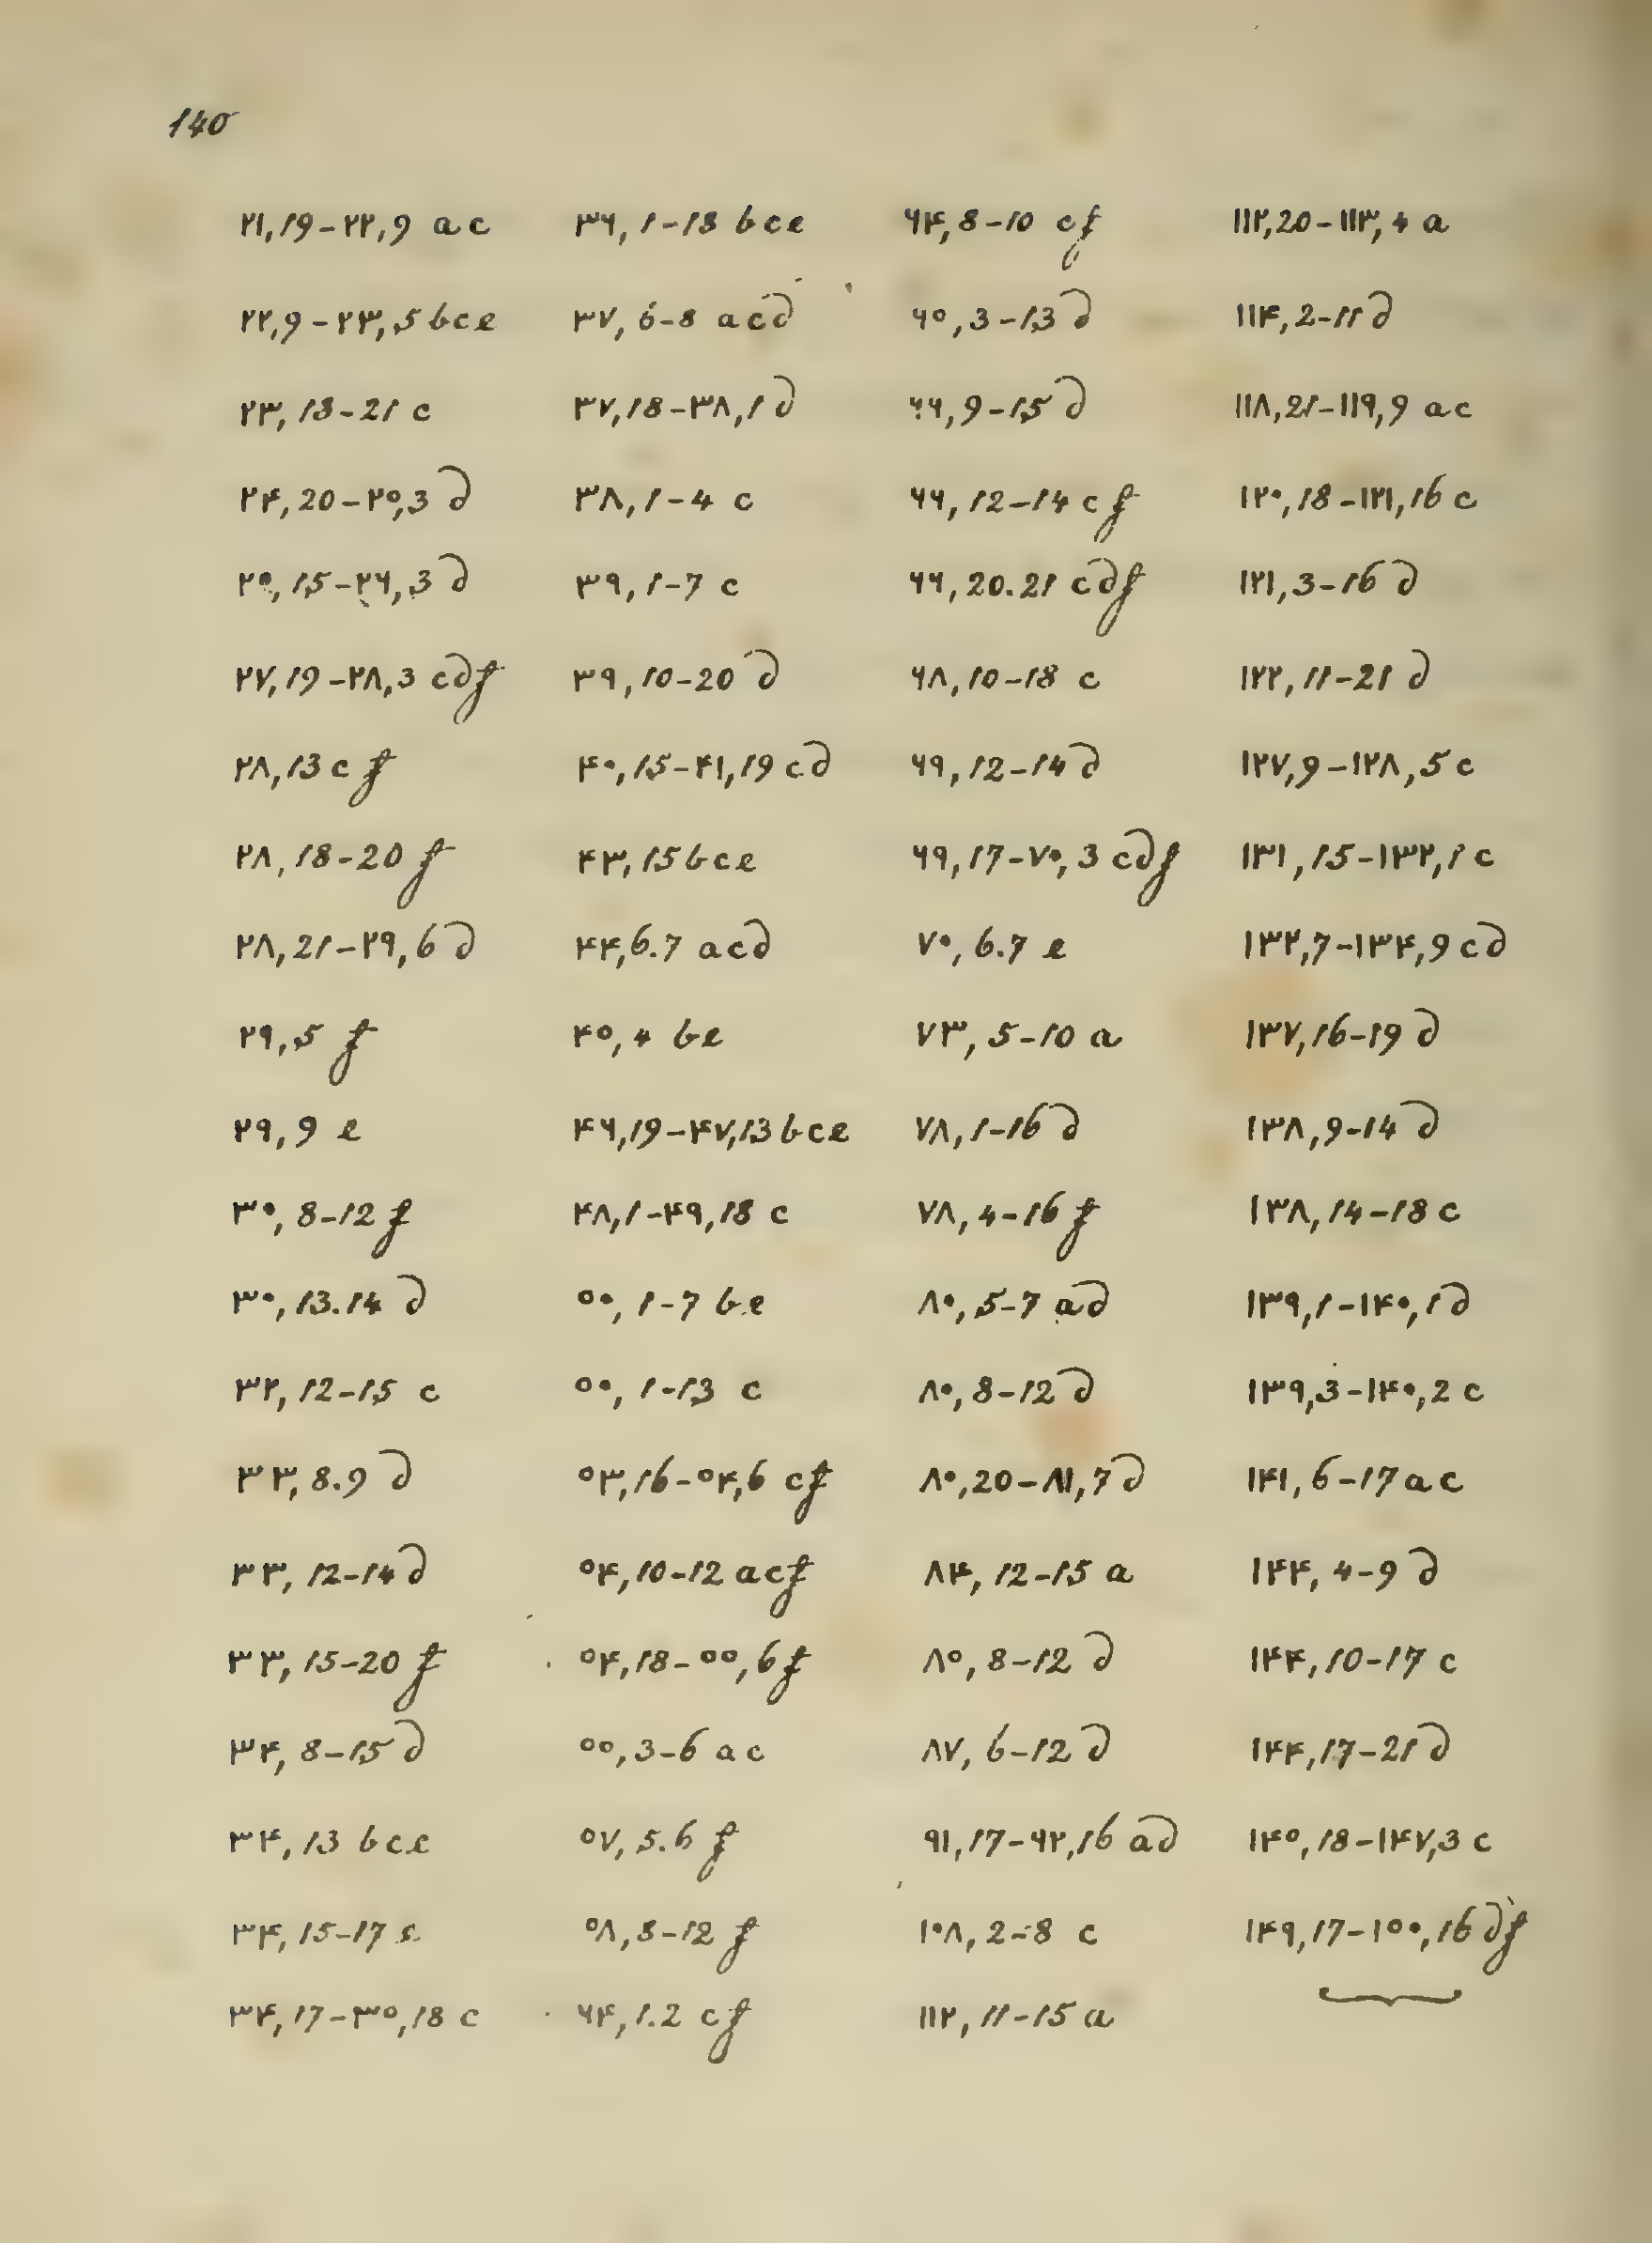 140
٢١,19-٢٢,9 ac
٢٢,9-٢٣,5 bce
٢٣,13-21 c
٢٤,20-٢٥,3 d
٢٥,15-٢٦,3 d
٢٧,19-٢٨,3 cdf
٢٨,13 cf
٢٨,18-20 f
٢٨,21-٢٩,6 d
٢٩,5 f
٢٩,9 e
٣٠,8-12 f
٣٠,13.14 d
٣٢,12-15 c
٣٣,8.9 d
٣٣,12-14 d
٣٣,15-20 f
٣٤,8-15 d
٣٤,13 bce
٣٤,15-17 e
٣٤,17-٣٥,18 c
٣٦,1-13 bce
٣٧,6-8 acd
٣٧,18-٣٨,1 d
٣٨,1-4 c
٣٩,1-7 c
٣٩,10-20 d
٤٠,15-٤١,19 cd
٤٣,15 bce
٤٤,6.7 acd
٤٥,4 be
٤٦,19-٤٧,13 bce
٤٨,1-٤٩,18 c
٥٠,1-7 be
٥٠,1-13 c
٥٣,16-٥٤,6 cf
٥٤,10-12 acf
٥٤,18-٥٥,6 f
٥٥,3-6 ac
٥٧,5.6 f
٥٨,8-12 f
٦٤,1.2 cf
٦٤,8-10 cf
٦٥,3-13 d
٦٦,9-15 d
٦٦,12-14 cf
٦٦,20.21 cdf
٦٨,10-18 c
٦٩,12-14 d
٦٩,17-٧٠,3 cdf
٧٠,6.7 e
٧٣,5-10 a
٧٨,1-16 d
٧٨,4-16 f
٨٠,5-7 ad
٨٠,8-12 d
٨٠,20-٨١,7 d
٨٤,12-15 a
٨٥,8-12 d
٨٧,6-12 d
٩١,17-٦٢,16 ad
١٠٨,2-8 c
١١٢,11-15 a
١١٢,20-١١٣,4 a
١١٤,2-11 d
١١٨,21-١١٩,9 ac
١٢٠,18-١٢١,16 c
١٢١,3-16 d
١٢٢,11-21 d
١٢٧,9-١٢٨,5 c
١٣١,15-١٣٢,1 c
١٣٢,7-١٣٤,9 cd
١٣٧,16-19 d
١٣٨,9-14 d
١٣٨,14-18 c
١٣٩,1-١٤٠,1 d
١٣٩,3-١٤٠,2 c
١٤١,6-17 ac
١٤٤,4-9 d
١٤٤,10-17 c
١٤٤,17-21 d
١٤٥,18-١٤٧,3 c
١٤٩,17-١٥٠,16 df